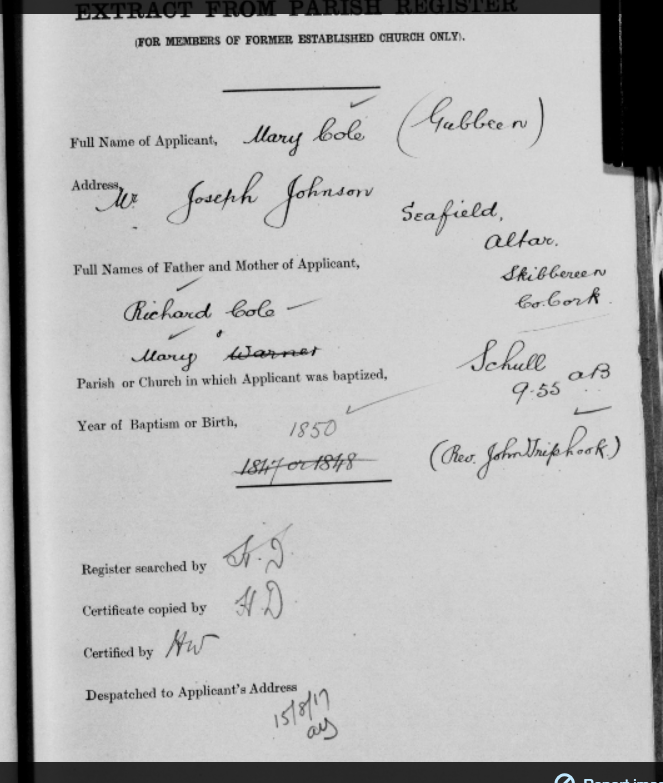 EXTRACT FROM PARISH REGISTER
(FOR MEMBERS OF FORMER ESTABLISHED CHURCH ONLY).
Full Name of Applicant, Mary Cole (Gubbeen)
Address, Mr Joseph Johnson
Seafield,
Altar.
Skibbereen
Co. Cork.
Full Names of Father and Mother of Applicant,
Richard Cole
Mary Warner
Parish or Church in which Applicant was baptized,
Schull
9.55 aB
Year of Baptism or Birth, 1850
1847 or 1848
(Rev. John Triphook.)
Register searched by H.D.
Certificate copied by H.D
Certified by HW
Despatched to Applicant's Address
15/8/17